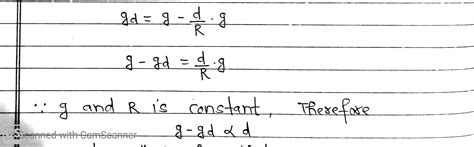 gd = g - d/R . g
g - gd = d/R . g
∵ g and R is constant, Therefore
g - gd ∝ d
Scanned with CamScanner